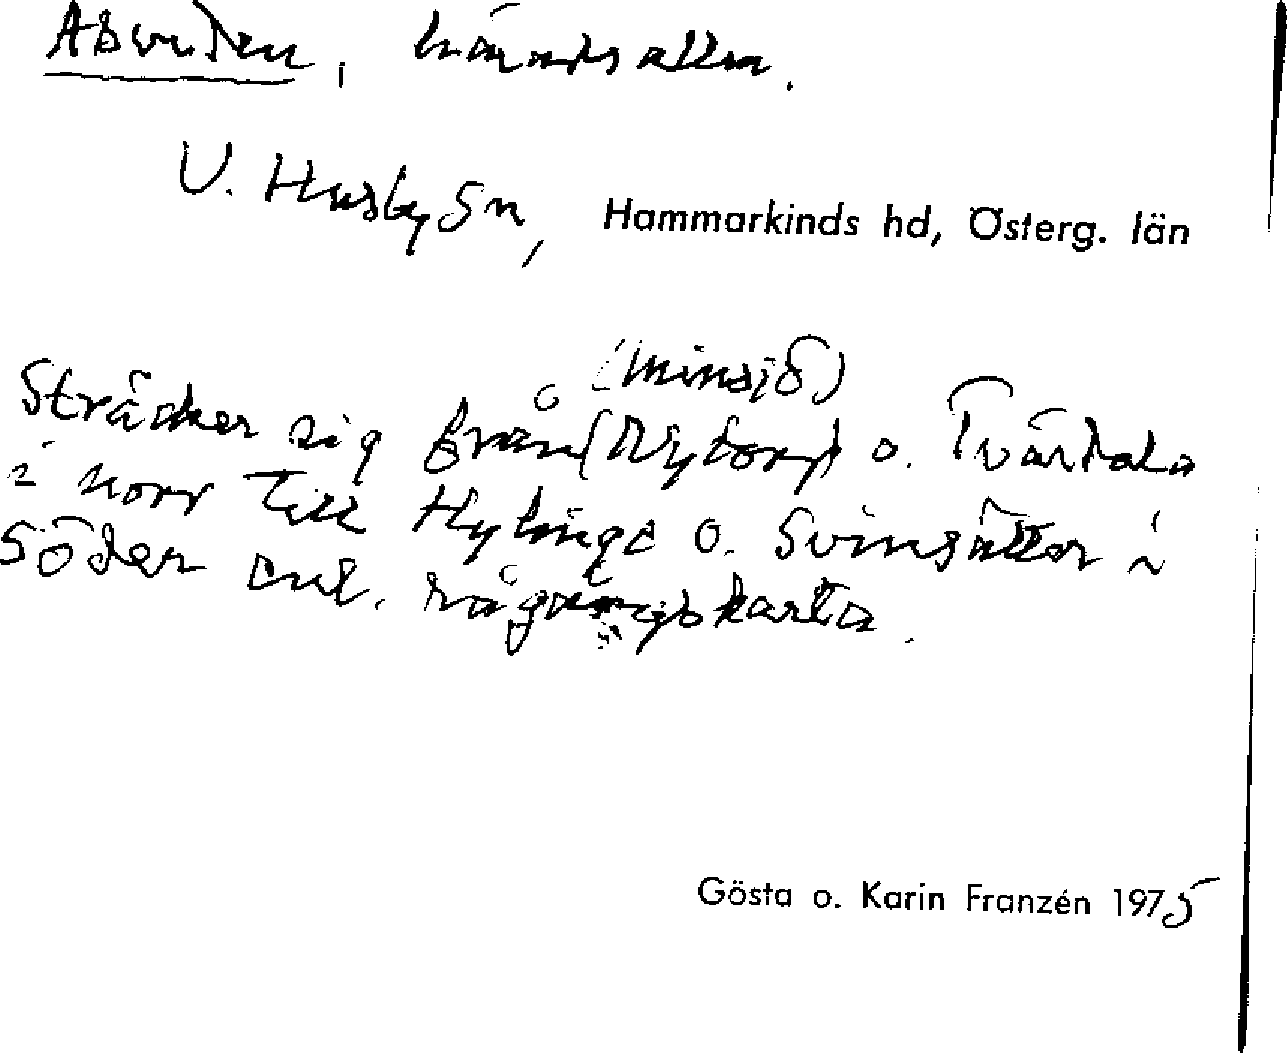 Absveden, häradsallm.
V. Husby Sn, Hammarkinds hd, Österg. län
(Minsjö)
Sträcker sig från (Nytorp o. Tvärdala
i norr till Hylinge o. Svinsätter i
Söder enl. rågångskarta.
Gösta o. Karin Franzén 1975